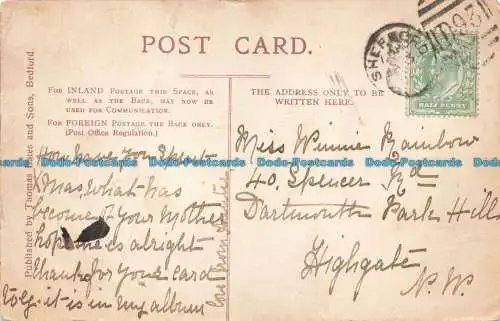 POST CARD.
FOR INLAND POSTAGE THIS SPACE, AS
WELL AS THE BACK, MAY NOW BE
USED FOR COMMUNICATION.
FOR FOREIGN POSTAGE THE BACK ONLY.
(Post Office Regulation.)
THE ADDRESS ONLY TO BE
WRITTEN HERE.
Published by Thomas and Sons, Bedford.
How have you spent
Xmas, what has
become of your Mother
hope she is alright
thanks for your card
it is in my album
love from
Miss Winnie Rainbow
40, Spencer Rd
Dartmouth Park Hill
Highgate
N.W.
HALF PENNY
D93
Dodo-Postcards Dodo-Postcards Dodo-Postcards Dodo-Postcards Dodo-Postcards